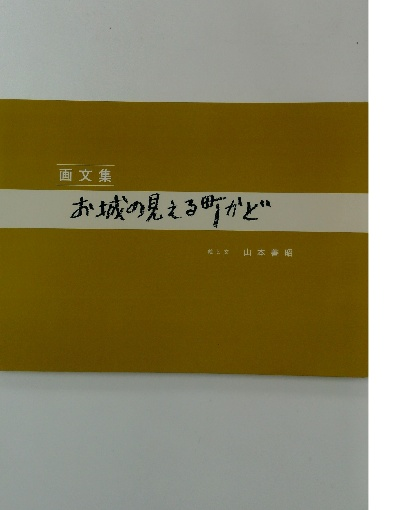 画文集
お城の見える町かど
絵と文 山本善昭